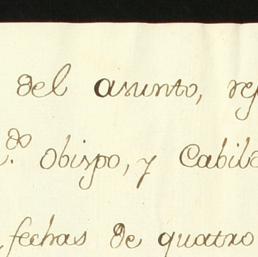 del asunto, re
do. Obispo, y Cabil
fechas de quatro